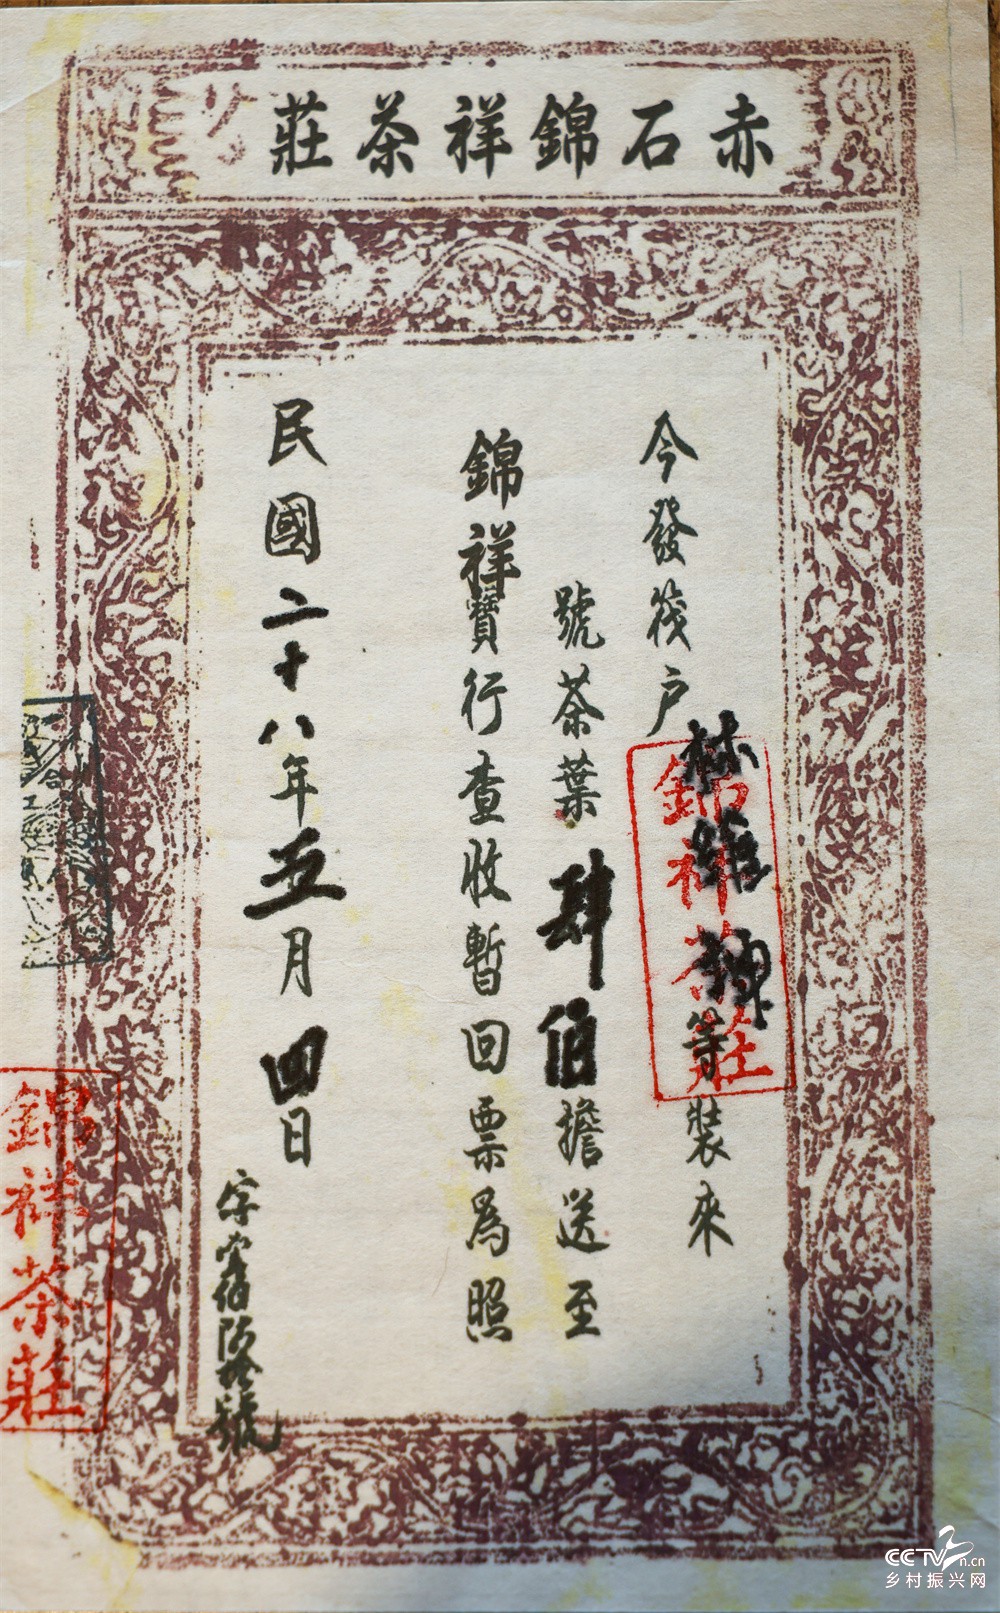 赤石錦祥茶莊
今發筏戶林維坤等裝來
號茶葉肆佰擔送至
錦祥寶行查收暫回票為照
民國二十八年五月四日
字壹佰陸拾號
錦祥茶莊
錦祥茶莊
CCTV.cn
乡村振兴网